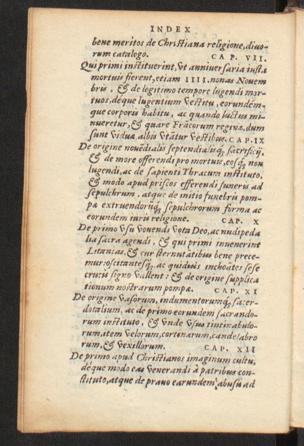 INDEX
bene meritos de Christiana religione, diuo-
rum catalogo. CAP. VII.
Qui primi instituerint, vt anniuersaria iusta
mortuis fierent, etiam IIII. nonas Nouem
bris, & de legitimo tempore lugendi mor-
tuos, deque lugentium vestitu, eorundem-
que corporis habitu, ac quando luctus mi-
nueretur, & quare Frácorum regina, dum
sunt viduæ, albis vtátur vestibus. CAP. IX
De origine nouēdialis septendialisq́;, sacrificij,
& de more offerendi pro mortuis, eosq́; non
lugendi, ac de sapienti Thracum instituto,
& modo apud priscos efferendi funeris ad
sepulchrum, atque de initio funebris pom-
pæ extruendorúq́; sepulchrorum forma ac
eorundem iuris religione. CAP. X
De primo vsu vouendi vota Deo, ac nudipeda
lia sacra agendi, & qui primi inuenerint
Litanias, & cur sternutatibus bene prece-
mur: oscitantesq́;, ac quiduis inchoātes sese
crucis signo vallent: & de origine supplica
tionum nostrarum pompæ. CAP. XI
De origine vasorum, indumentorumq́;, sacer-
dotalium, ac de primo eorundem sacrando-
rum instituto, & vnde vsus tintinnabulo-
rum, item velorum, cortinarum, candelabro
rum, & vexillorum. CAP. XII
De primo apud Christianos imaginum cultu,
déque modo eas venerandi à patribus con-
stituto, atque de prauo earundem abusu ad